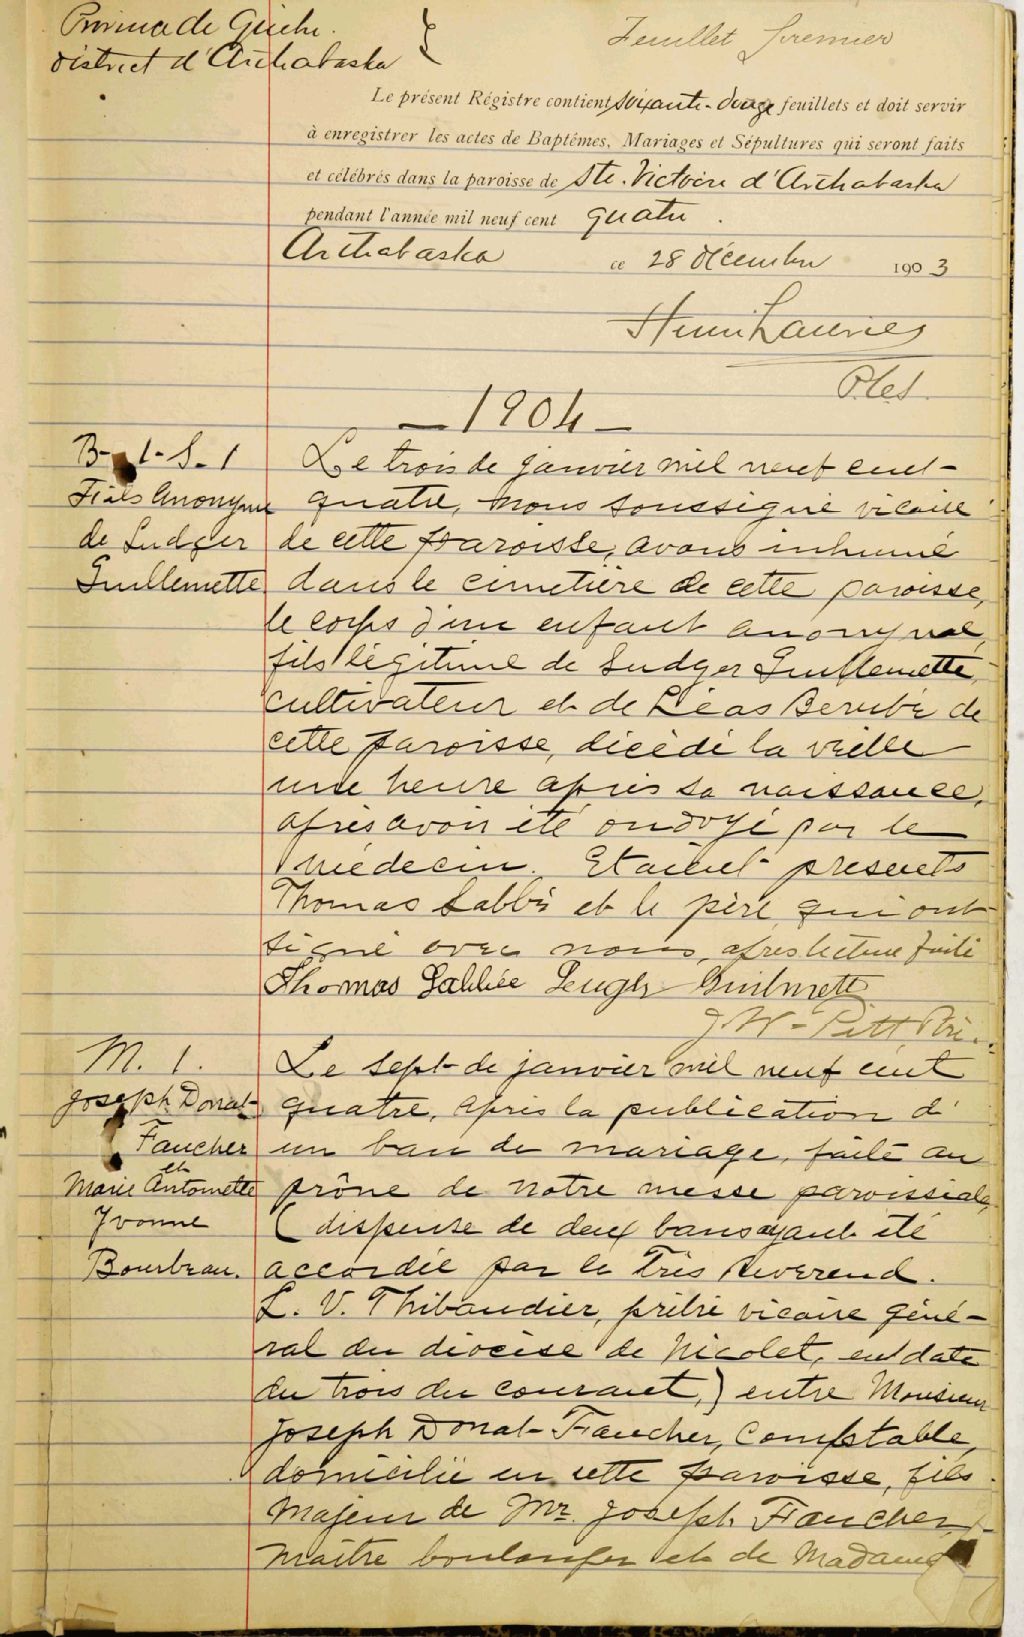 Province de Québec
district d'Arthabaska
Feuillet premier
Le présent Régistre contient soixante-douze feuillets et doit servir
à enregistrer les actes de Baptêmes, Mariages et Sépultures qui seront faits
et célébrés dans la paroisse de Ste. Victoire d'Arthabaska
pendant l'année mil neuf cent quatre.
Arthabaska ce 28 décembre 1903
Henri Laurier
P.C.S.
— 1904 —
B- 1- S- 1
Fils Anonyme
de Ludger
Guillemette
Le trois de janvier mil neuf cent-
quatre, nous soussigné vicaire
de cette paroisse, avons inhumé
dans le cimetière de cette paroisse,
le corps d'un enfant anonyme,
fils légitime de Ludger Guillemette,
cultivateur et de Léas Berubé de
cette paroisse, décédé la veille
une heure après sa naissance,
après avoir été ondoyé par le
médecin. Etaient presents
Thomas Labbé et le père qui ont
signé avec nous, après lecture faite
Thomas Labbée Guilmette
J. W- Pitt Ptre.
M. 1.
Joseph Donat
Faucher
et
Marie Antoinette
Yvonne
Bourbeau.
Le sept de janvier mil neuf cent
quatre, après la publication d'
un ban de mariage, faite au
prône de notre messe paroissiale,
(dispense de deux bans ayant été
accordée par le Très Reverend.
L. V. Thibaudier, prêtre vicaire géné-
ral du diocèse de Nicolet, en date
du trois du courant,) entre Monsieur
Joseph Donat-Faucher, Comptable,
domicilié en cette paroisse, fils
Majeur de Mr. Joseph Faucher,
Maître boulanger et de Madame